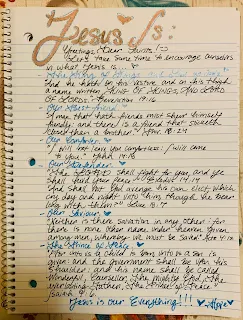 Jesus Is:
Greetings Dear Saints! :-)
Let's take some time to encourage ourselves
in what Jesus is...
The King of Kings
And he hath on his vesture and on his thigh
a name written, KING OF KINGS, AND LORD
OF LORDS. Revelation 19:16
Our Best Friend
A man that hath friends must shew himself
friendly: and there is a friend that sticketh
closer than a brother. Prov. 18:24
Our Comforter
I will not leave you comfortless: I will come
to you. John 14:18
Our Defender
The LORD shall fight for you, and ye
shall hold your peace. Exodus 14:14
And shall not God avenge his own elect, which
cry day and night unto him, though he bear
long with them? Luke 18:7
Our Saviour
Neither is there salvation in any other: for
there is none other name under heaven given
among men, whereby we must be saved. Acts 4:12
The Prince of Peace
For unto us a child is born, unto us a son is
given: and the government shall be upon his
shoulder: and his name shall be called
Wonderful, Counsellor, The mighty God, The
everlasting Father, The Prince of Peace.
Isaiah 9:6
Jesus is our Everything!!!
Hope